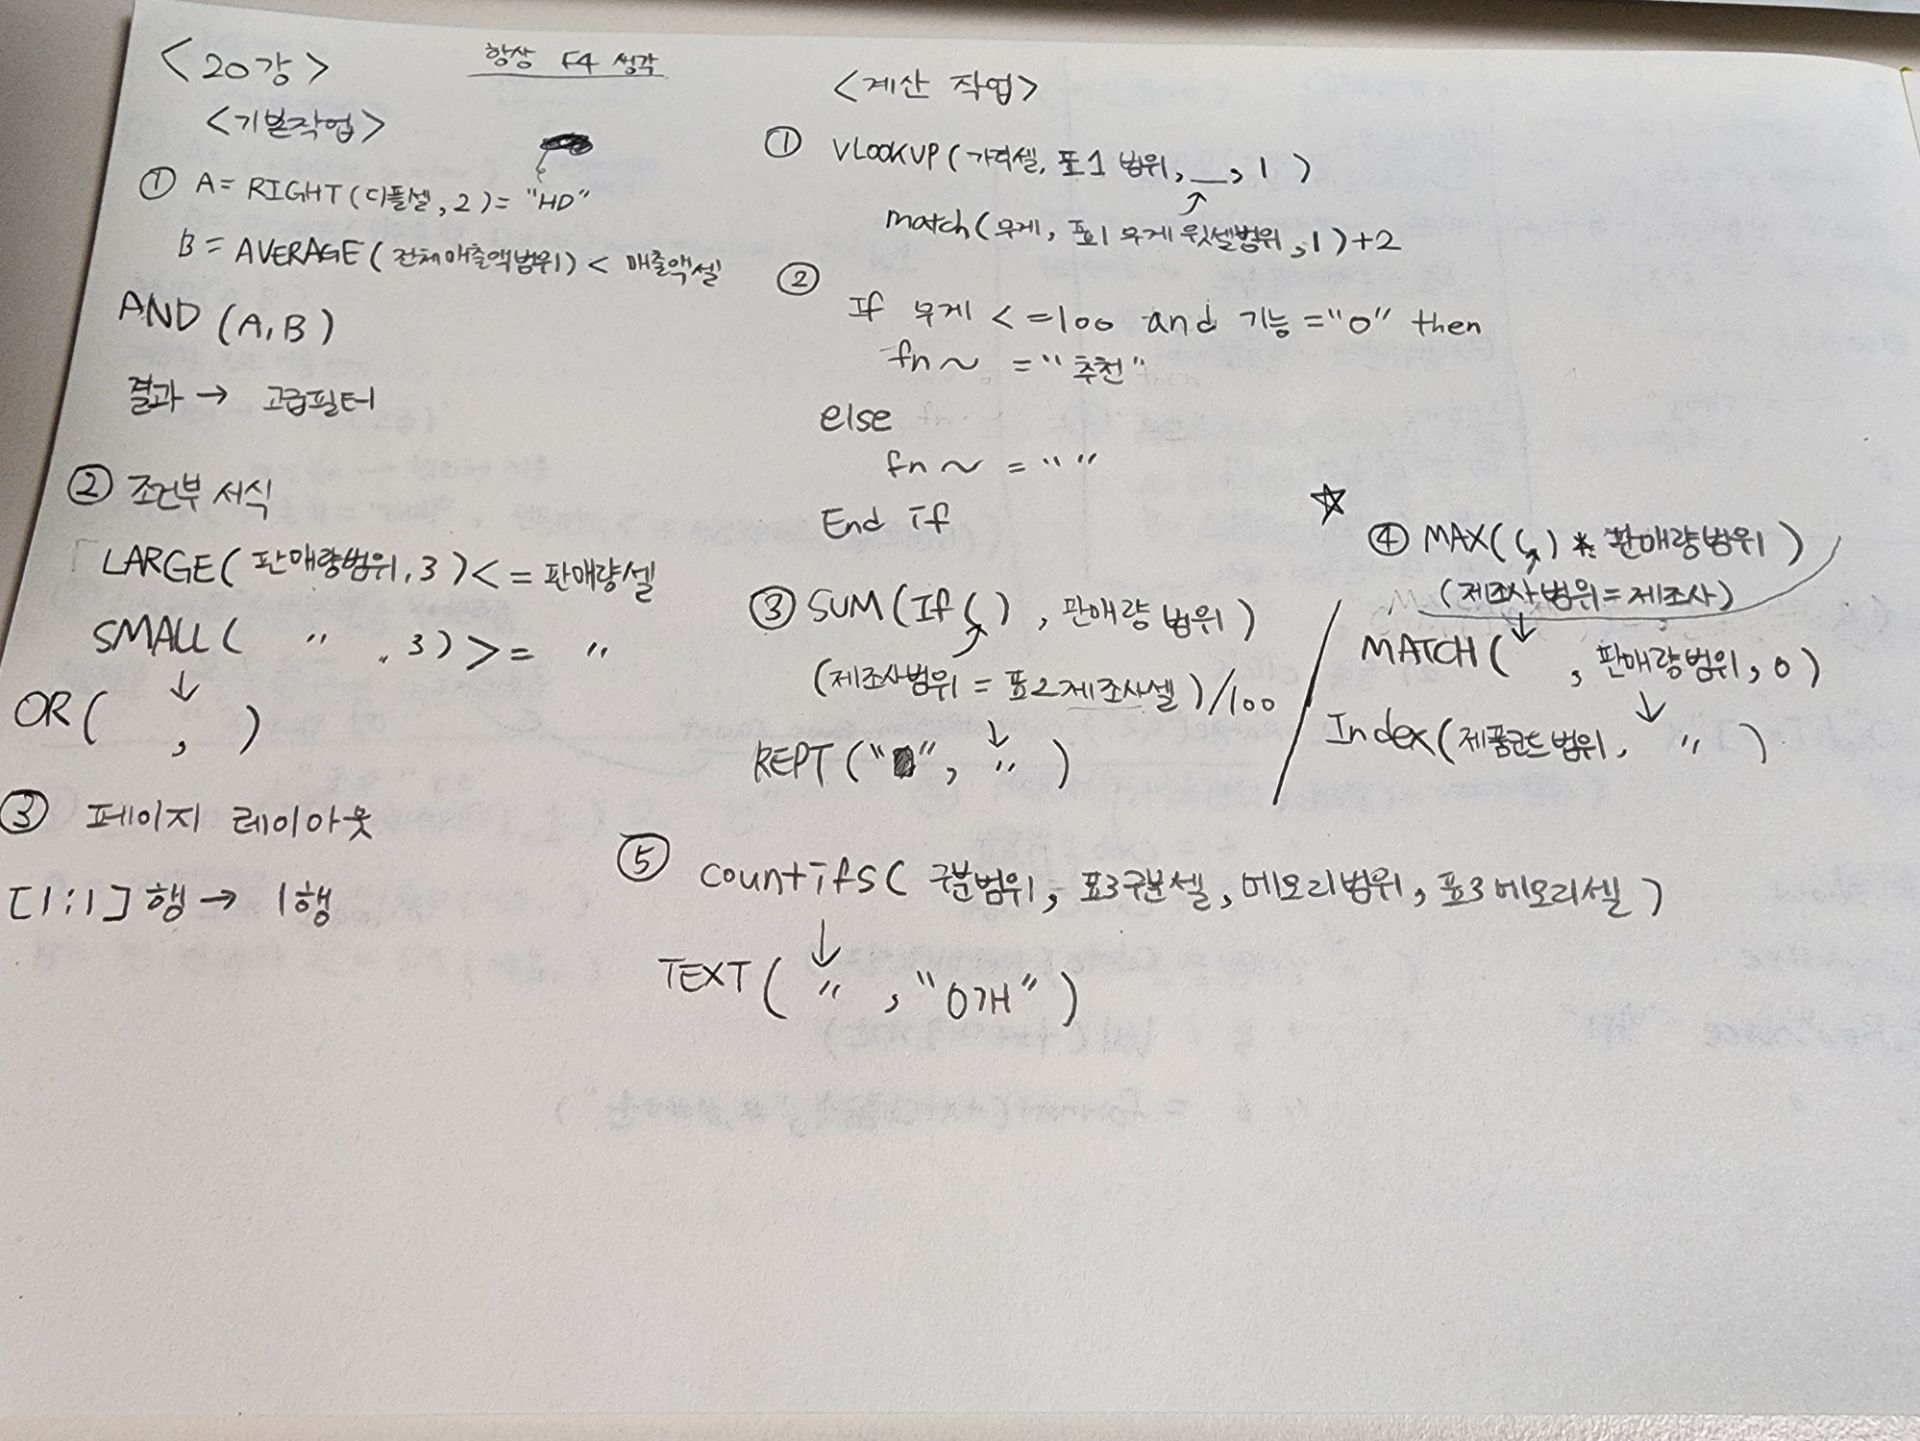 <20강>
항상 F4 생각
<기본작업>
① A = RIGHT(디플셀, 2) = "HD"
B = AVERAGE(전체매출액범위) < 매출액셀
AND (A, B)
결과 → 고급필터
② 조건부 서식
LARGE( 판매량범위, 3 ) < = 판매량셀
SMALL( " , 3) > = "
↓
OR( , )
③ 페이지 레이아웃
[1:1] 행 → 1행
<계산 작업>
① VLOOKUP( 가격셀, 표1 범위, __, 1 )
match(무게, 표1 무게 윗셀범위, 1) + 2
②
If 무게 < = 100 and 기능 = "0" then
fn ~ = "추천"
else
fn ~ = " "
End if
③ SUM(If( ) , 판매량 범위 )
(제조사범위 = 표2제조사셀) / 100
↓
REPT( " ", " )
☆
④ MAX( ( ) * 판매량범위 )
(제조사범위 = 제조사)
↓
MATCH( , 판매량범위, 0 )
↓
Index( 제품코드범위, " )
⑤ countifs( 구분범위, 표3구분셀, 메모리범위, 표3메모리셀 )
↓
TEXT( " , "0개" )